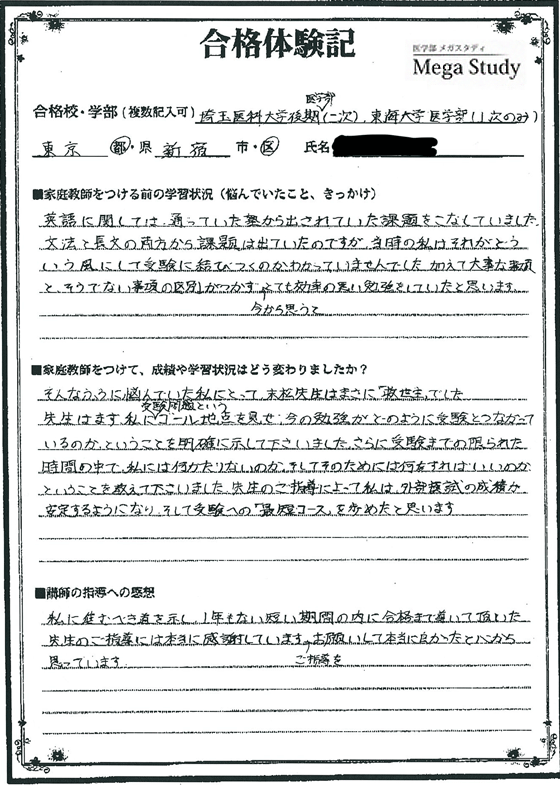 合格体験記
医学部 メガスタディ
Mega Study
合格校・学部(複数記入可) 埼玉医科大学後期医学部(二次)、東海大学医学部(1次のみ)
東京 都・県 新宿 市・区 氏名
■家庭教師をつける前の学習状況(悩んでいたこと、きっかけ)
英語に関しては、通っていた塾から出されていた課題をこなしていました。
文法と長文の両方から課題は出ていたのですが、当時の私はそれがどう
いう風にして受験に結びつくのかわかっていませんでした。加えて大事な事項
と、そうでない事項の区別がつかず、今から思うととても効率の悪い勉強をしていたと思います。
■家庭教師をつけて、成績や学習状況はどう変わりましたか?
そんなふうに悩んでいた私にとって、末松先生はまさに「救世主」でした
先生はまず、私に受験問題というゴール地点を見せ、今の勉強がどのように受験とつながって
いるのか、ということを明確に示して下さいました。さらに受験までの限られた
時間の中で、私には何がたりないのか、そしてそのためには何をすればいいのか
ということを教えて下さいました。先生のご指導によって私は、外部模試の成績が
安定するようになり、そして受験への「最短コース」を歩めたと思います
■講師の指導への感想
私に進むべき道を示し、1年もない短い期間の内に合格まで導いて頂いた
先生のご指導には本当に感謝しています。ご指導をお願いして本当に良かったと心から
思っています。